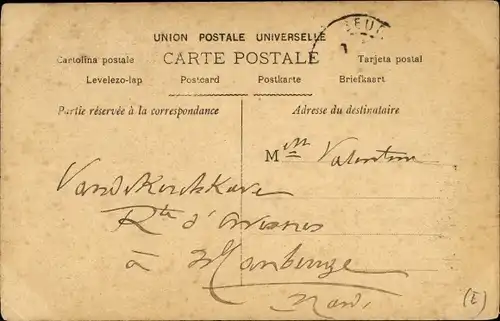 UNION POSTALE UNIVERSELLE
CARTE POSTALE
Cartolina postale Tarjeta postal
Levelezo-lap Postcard Postkarte Briefkaart
Partie réservée à la correspondance
Adresse du destinataire
Mlle Valentine
Vandekerckhove
Rte d'Avesnes
à Maubeuge
Nord.
(E)